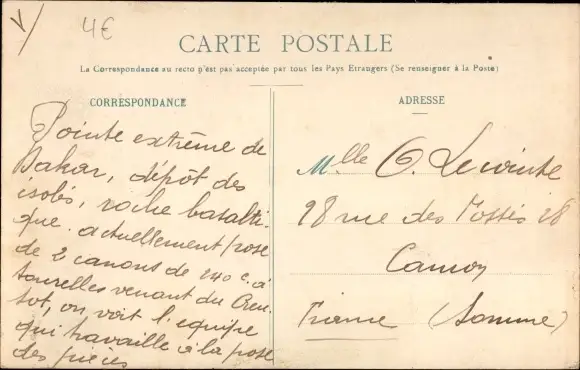 V/
4€
CARTE POSTALE
La Correspondance au recto n'est pas acceptée par tous les Pays Etrangers (Se renseigner à la Poste)
CORRESPONDANCE
Pointe extrême de
Dakar, dépôt des
isolés, roche basalti-
que. actuellement pose
de 2 canons de 240 c. à
tourelles venant du Creu-
sot, on voit l'equipe
qui travaille à la pose
des pièces
ADRESSE
Mlle G. Lecointe
28 rue des Fossés 28
France (Somme)